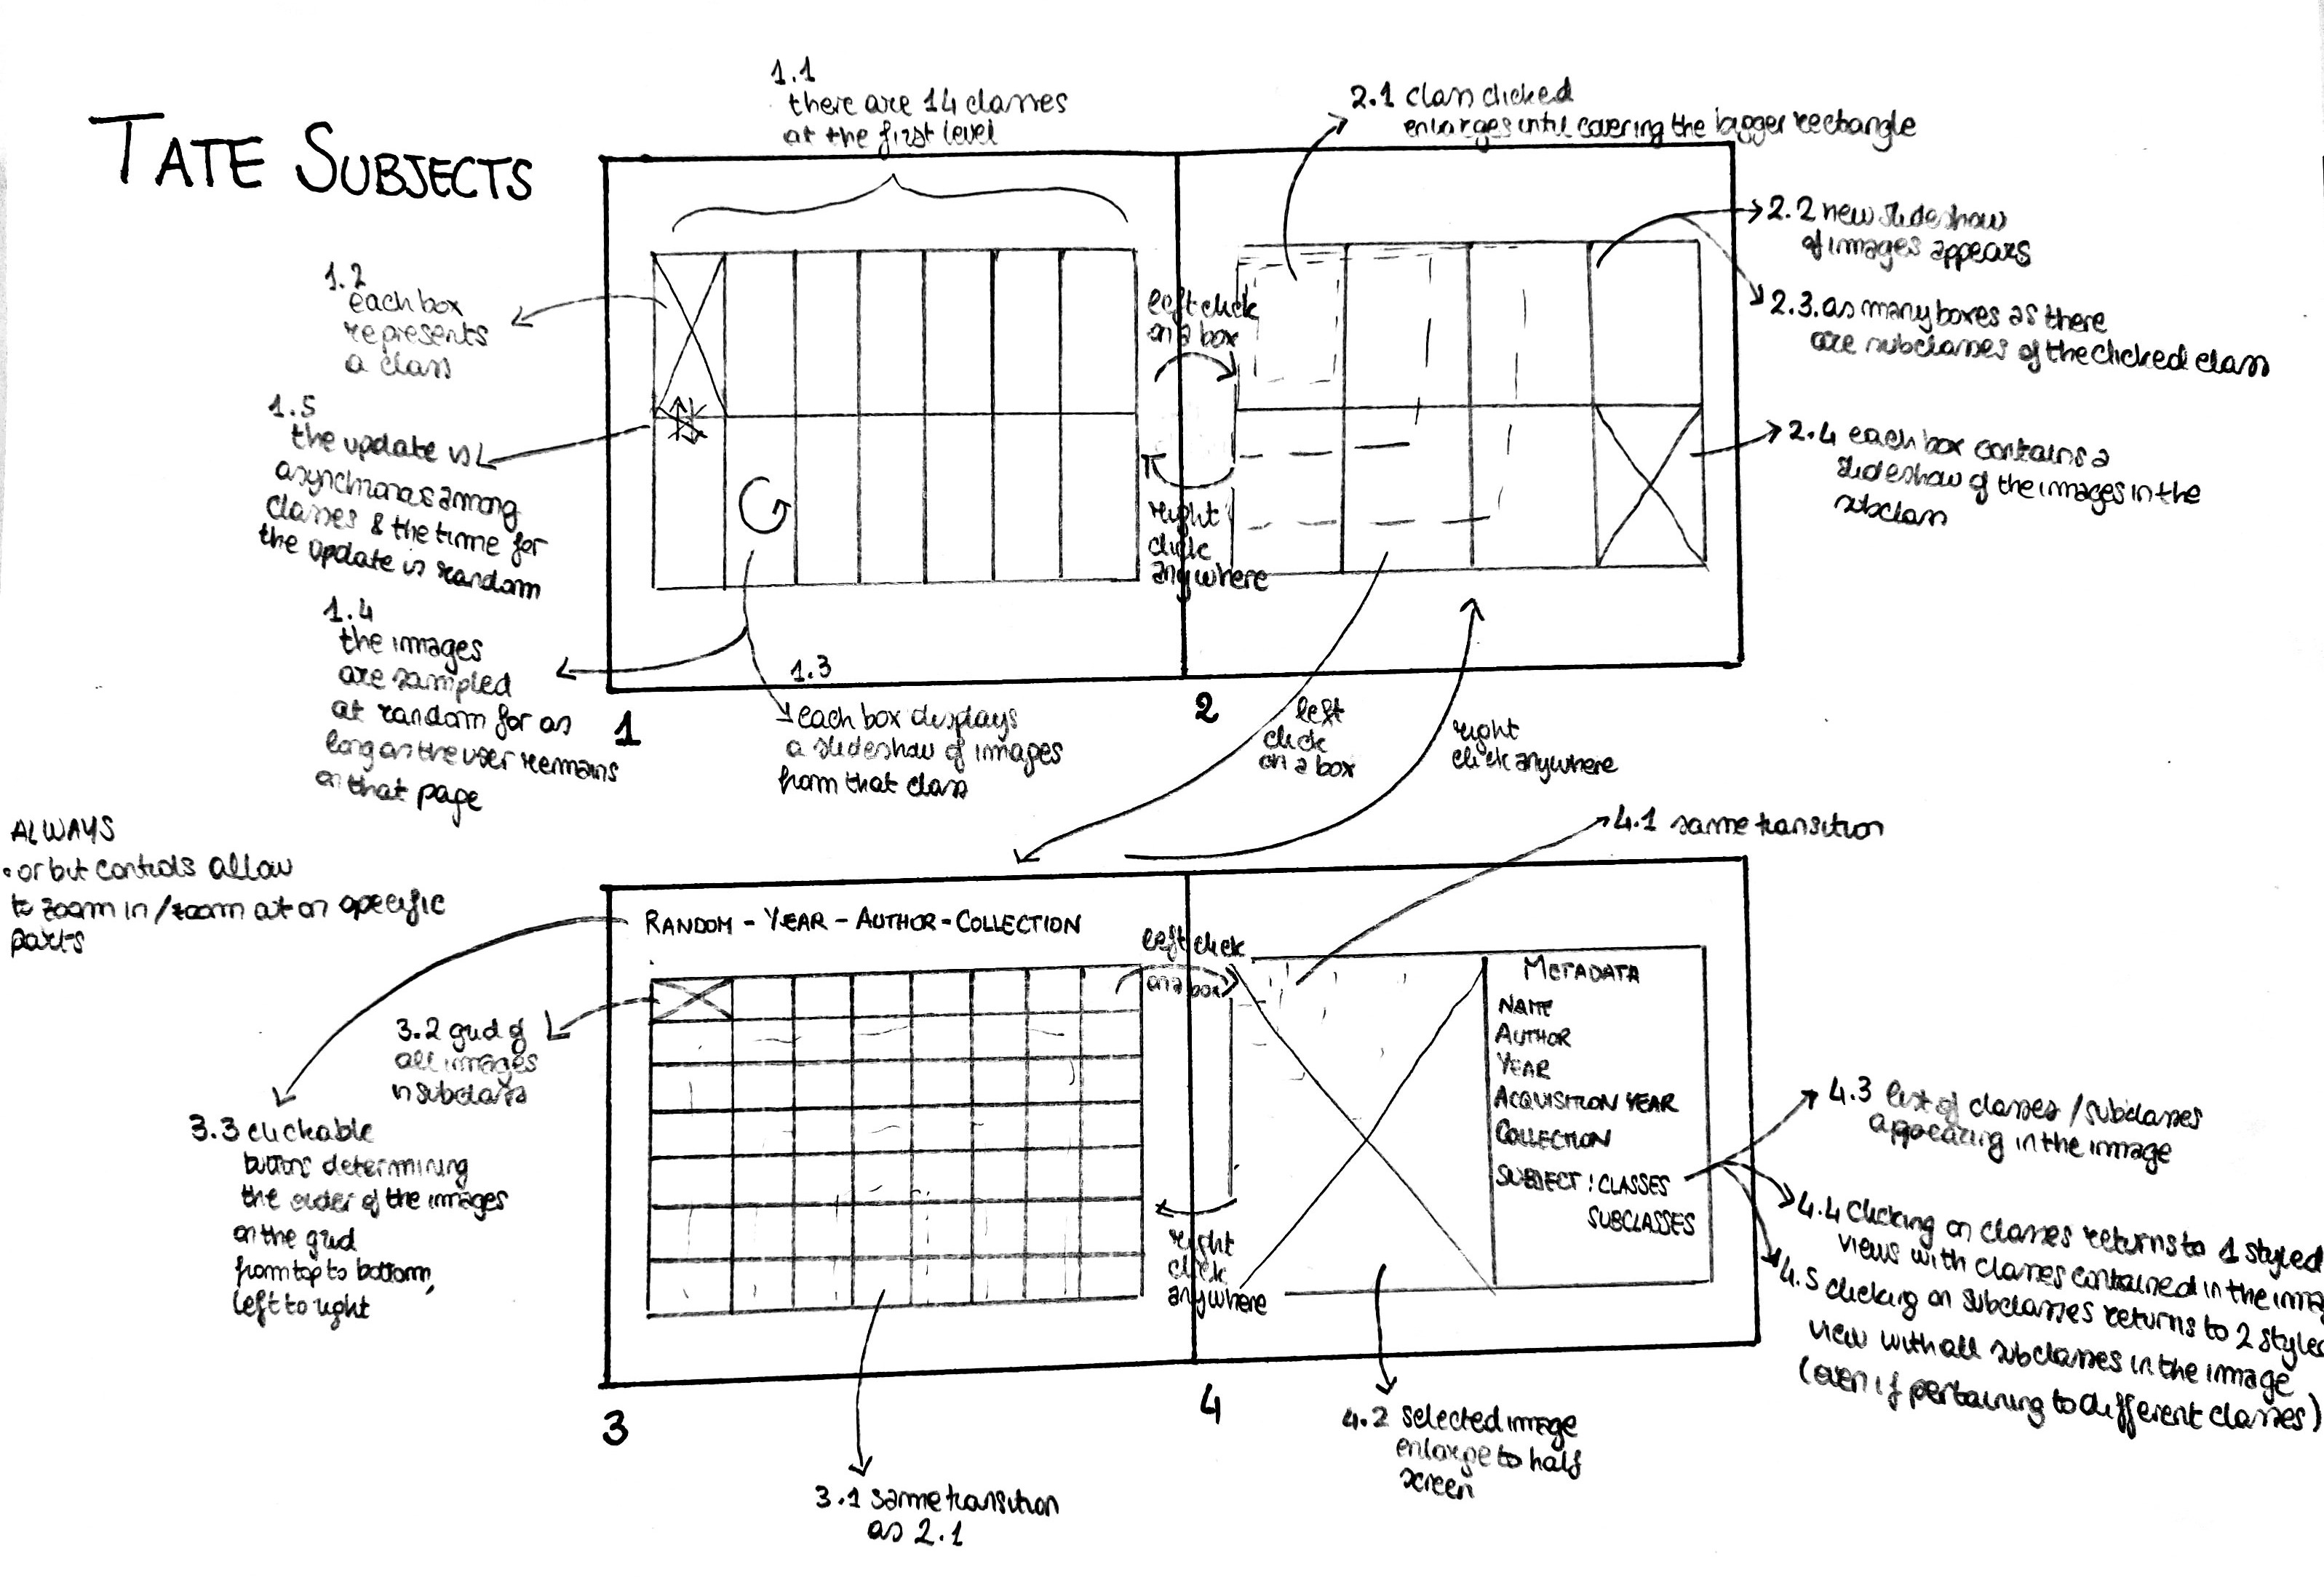 TATE SUBJECTS
1.1
there are 14 classes
at the first level
1.2
each box
represents
a class
1.5
the update is
asynchronous among
classes & the time for
the update is random
1.4
the images
are sampled
at random for as
long as the user remains
on that page
1.3
each box displays
a slideshow of images
from that class
1
left click
on a box
right
click
anywhere
2.1 class clicked
enlarges until covering the bigger rectangle
2.2 new slideshow
of images appears
2.3. as many boxes as there
are subclasses of the clicked class
2.4 each box contains a
slideshow of the images in the
subclass
2
left
click
on a box
right
click anywhere
ALWAYS
• orbit controls allow
to zoom in / zoom out on specific
parts
RANDOM - YEAR - AUTHOR - COLLECTION
3.2 grid of
all images
in subclass
3.3 clickable
buttons determining
the order of the images
on the grid
from top to bottom,
left to right
3
3.1 same transition
as 2.1
left click
on a box
right
click
anywhere
4.1 same transition
METADATA
NAME
AUTHOR
YEAR
ACQUISITION YEAR
COLLECTION
SUBJECT : CLASSES
SUBCLASSES
4
4.2 selected image
enlarge to half
screen
4.3 list of classes / subclasses
appearing in the image
4.4 clicking on classes returns to 1 styled
views with classes contained in the ima
4.5 clicking on subclasses returns to 2 style
view with all subclasses in the image
(even if pertaining to different classes)